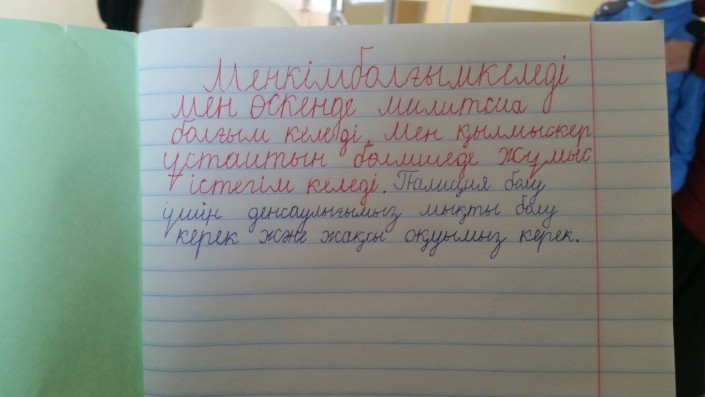 Менкімболғымкеледі
мен өскенде милитсиа
болғым келеді. Мен қылмыскер
ұстаитын бөлмшеде жұмыс
істегім келеді. Палиция болу
үшін денсаулығымыз мықты болу
керек және жақсы оқуымыз керек.